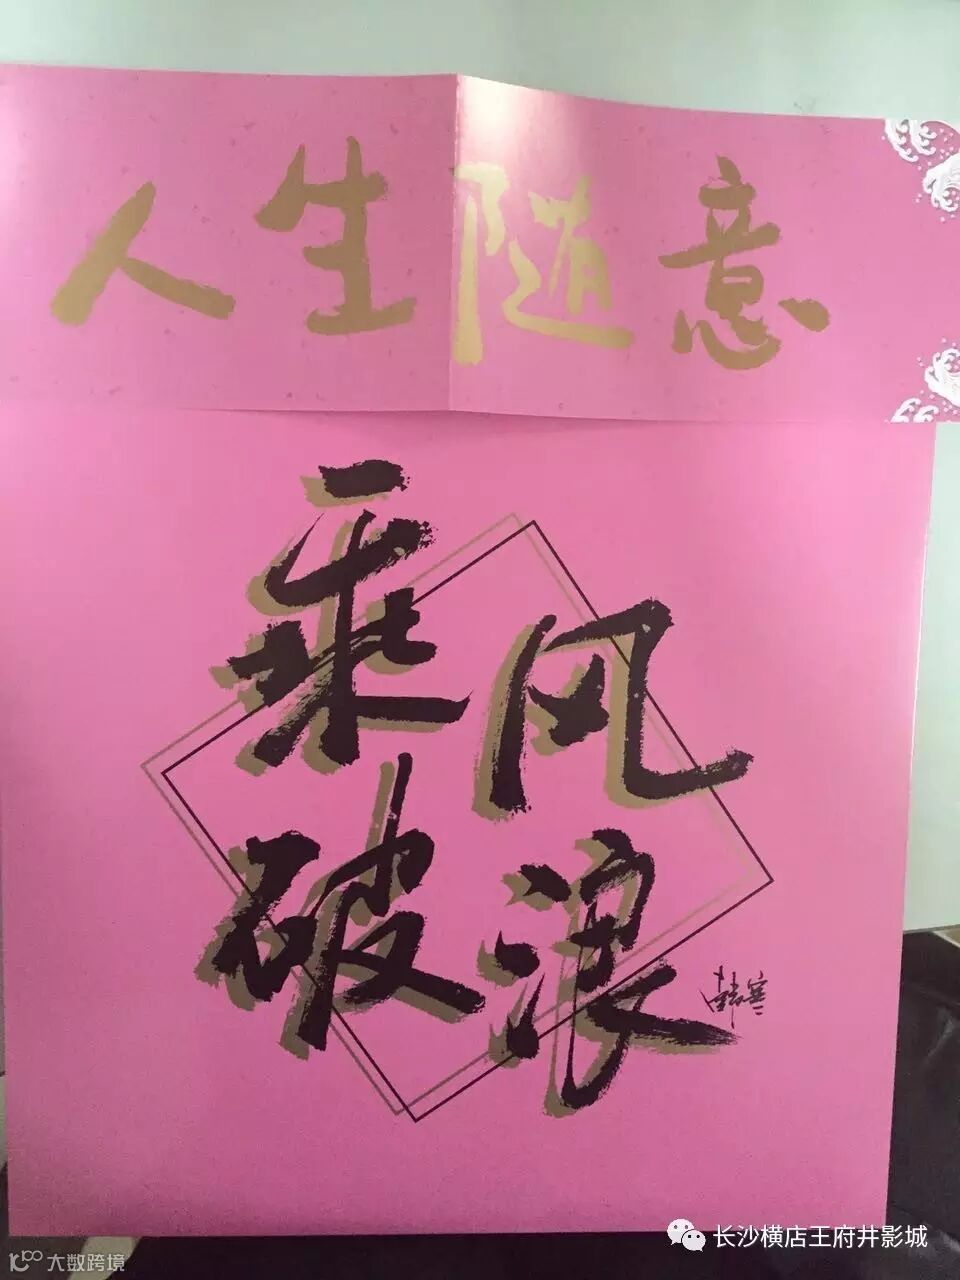 人生随意
乘风
破浪
韩寒
长沙横店王府井影城
大数跨境